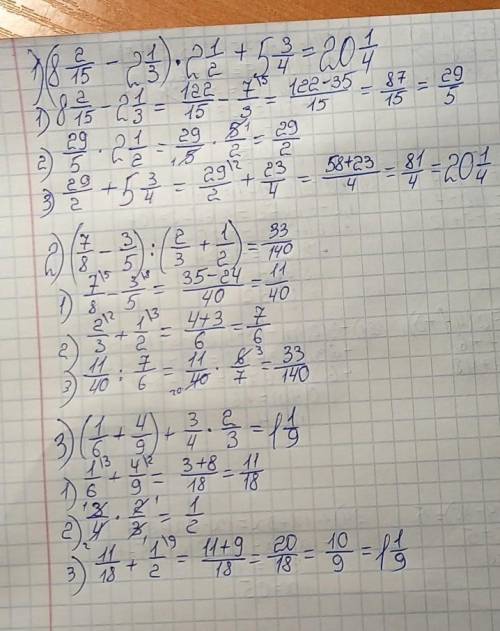 1) (8 2/15 − 2 1/3) · 2 1/2 + 5 3/4 = 20 1/4
1) 8 2/15 − 2 1/3 = 122/15 − 7/3 \5 = (122−35)/15 = 87/15 = 29/5
2) 29/5 · 2 1/2 = 29/5 1 · 5 1/2 = 29/2
3) 29/2 + 5 3/4 = 29/2 \2 + 23/4 = (58+23)/4 = 81/4 = 20 1/4
2) (7/8 − 3/5) : (2/3 + 1/2) = 33/140
1) 7/8 \5 − 3/5 \8 = (35−24)/40 = 11/40
2) 2/3 \2 + 1/2 \3 = (4+3)/6 = 7/6
3) 11/40 : 7/6 = 11/40 20 · 6 3/7 = 33/140
3) (1/6 + 4/9) + 3/4 · 2/3 = 1 1/9
1) 1/6 \3 + 4/9 \2 = (3+8)/18 = 11/18
2) 3 1/4 2 · 2 1/3 1 = 1/2
3) 11/18 + 1/2 \9 = (11+9)/18 = 20/18 = 10/9 = 1 1/9